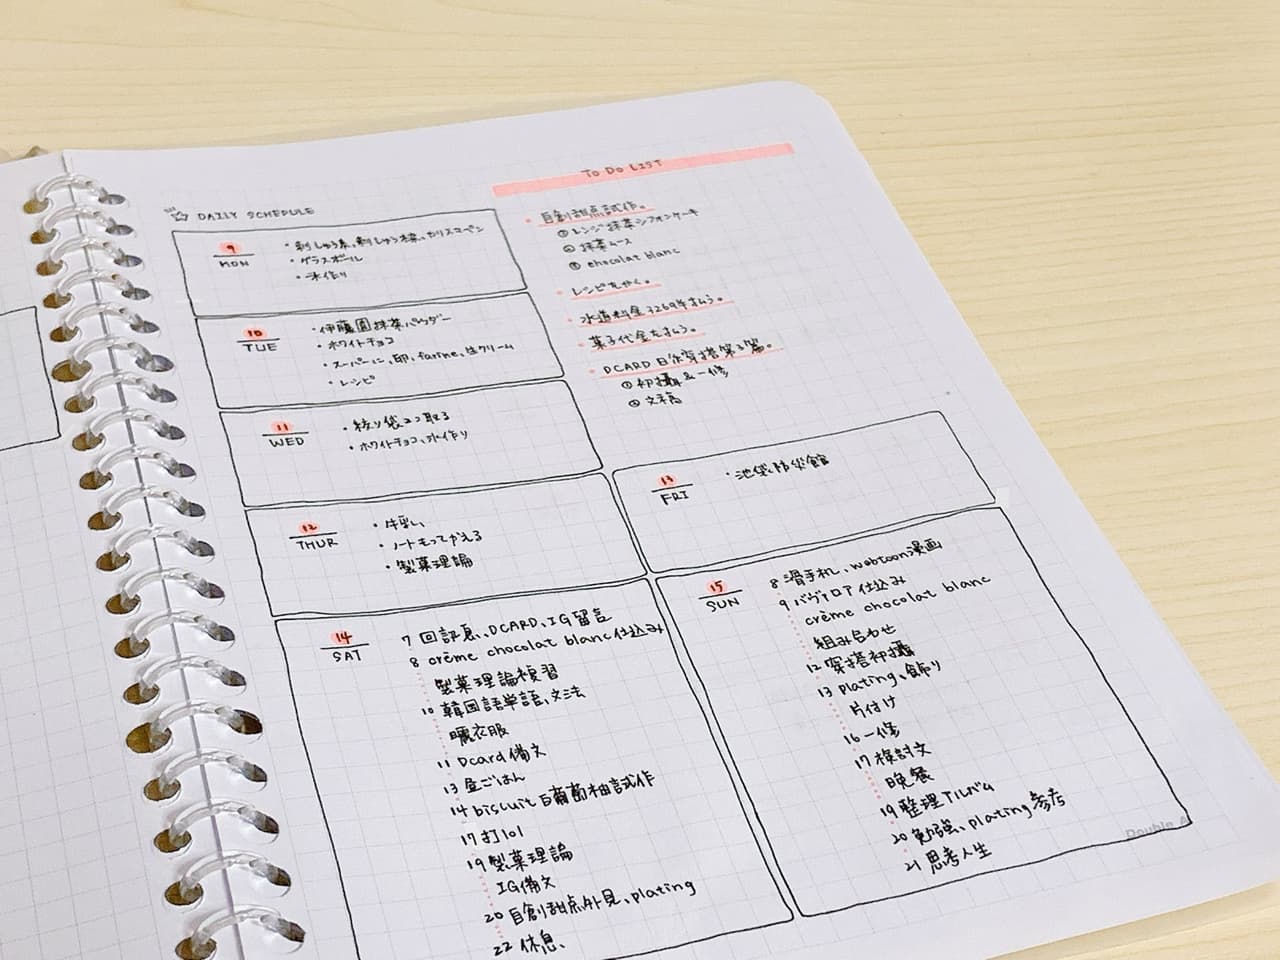 DAILY SCHEDULE
9
MON
・刺しゅう糸、刺しゅう枠、カリスマペン
・グラスボール
・氷作り
10
TUE
・伊藤園抹茶パウダー
・ホワイトチョコ
・スーパーに、卵、farine、生クリーム
・レシピ
11
WED
・絞り袋コン取る
・ホワイトチョコ、氷作り
12
THUR
・牛乳
・ノートもってかえる
・製菓理論
14
SAT
7 回訊息、DCARD、IG留言
8 crème chocolat blanc仕込み
製菓理論複習
10 韓国語単語、文法
曬衣服
11 Dcard備文
13 昼ごはん
14 biscuit 白葡萄柚試作
17 打101
19 製菓理論
IG備文
20 自創甜点外見、plating
22 休息、
TO DO LIST
・自創甜点試作。
① レンジ抹茶シフォンケーキ
② 抹茶ムース
③ chocolat blanc
・レシピもかく。
・水道料金3269年払う。
・菓子代金を払う。
・DCARD日系穿搭第3篇。
① 初攝&一修
② 文稿
13
FRI
・池袋防災館
15
SUN
8 滑手机、webtoon漫画
9 バヴァロア仕込み
crème chocolat blanc
組み合わせ
12 穿搭初攝
13 plating、飾り
片付け
16 一修
17 検討文
晩餐
19 整理アルバム
20 勉強、plating参考
21 思考人生
Double A